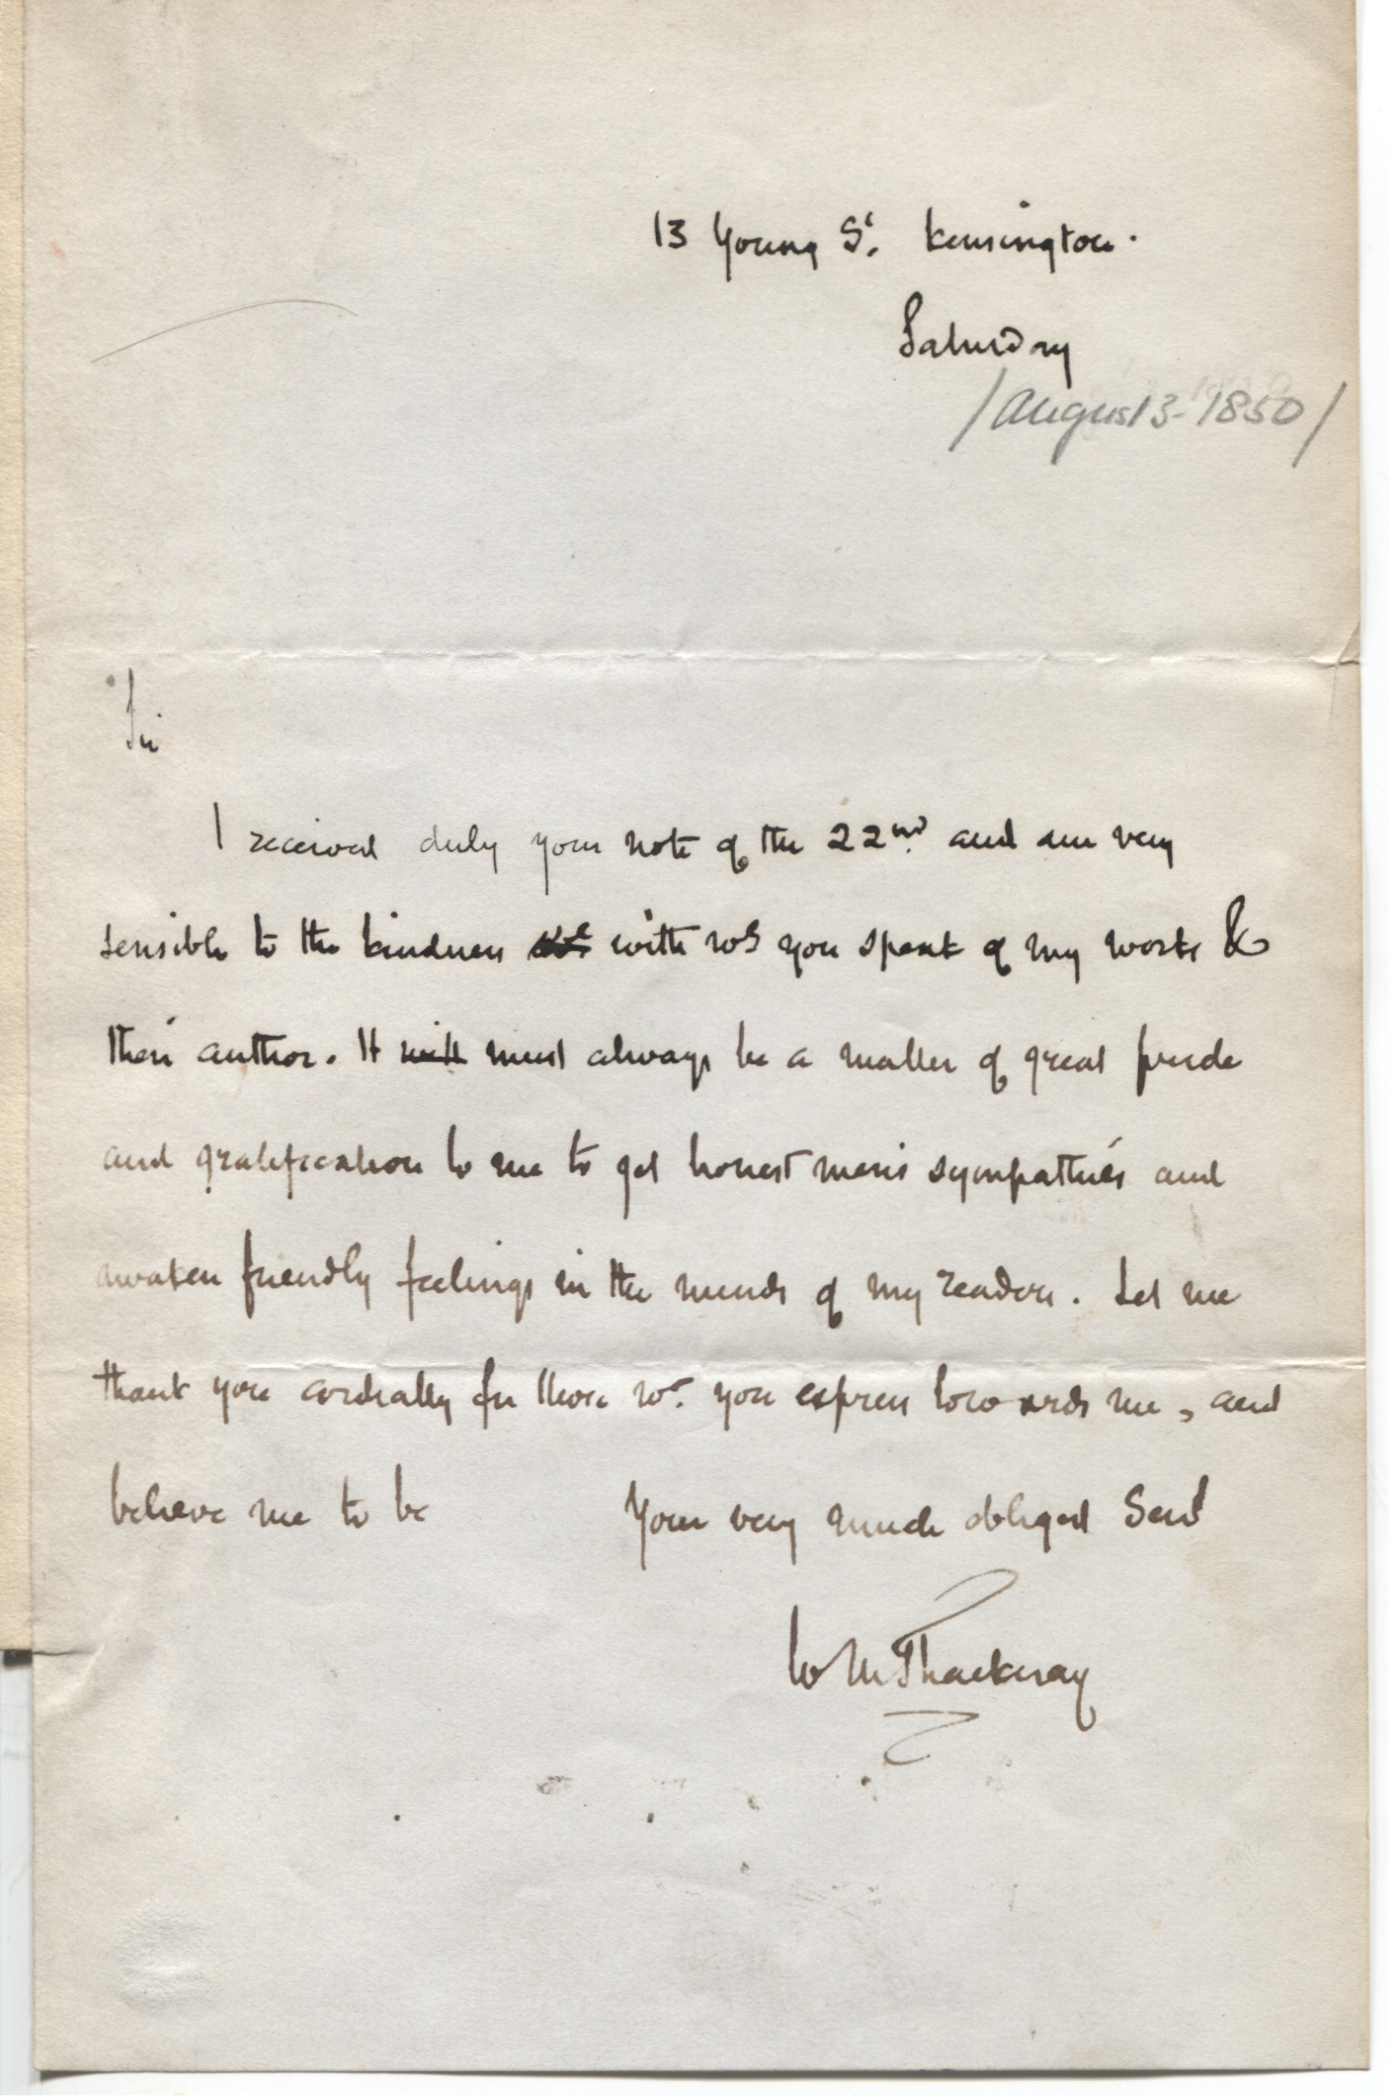 13 Young St. Kensington.
Saturday
/August 3 - 1850/
Sir
I received duly your note of the 22nd. and am very
sensible to the kindness with wh you speak of my works &
their author. It will must always be a matter of great pride
and gratification to me to get honest men's sympathies and
awaken friendly feelings in the minds of my readers. Let me
thank you cordially for those wh. you express towards me, and
believe me to be Your very much obliged Servt
W M Thackeray